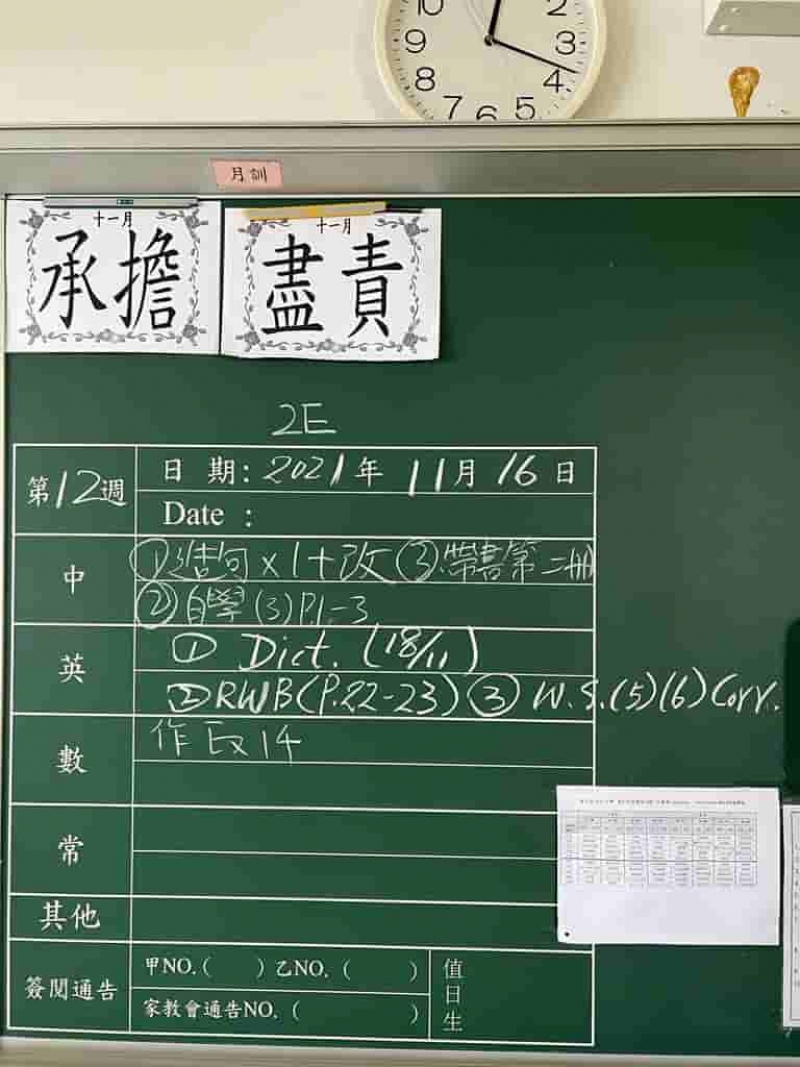 10 2
9 3
8 4
7 6 5
月訓
十一月 十一月
承擔 盡責
2E
第12週 日期: 2021年 11月 16日
Date :
中 ①造句x1+改 ③帶書第二冊
②自學(3)P1-3
英 ① Dict. (18/11)
②RWB(P.22-23) ③ W.S.(5)(6) Corr.
數 作 14
常
其他
簽閱通告 甲NO.( ) 乙NO.( ) 值日生
家教會通告NO.( )